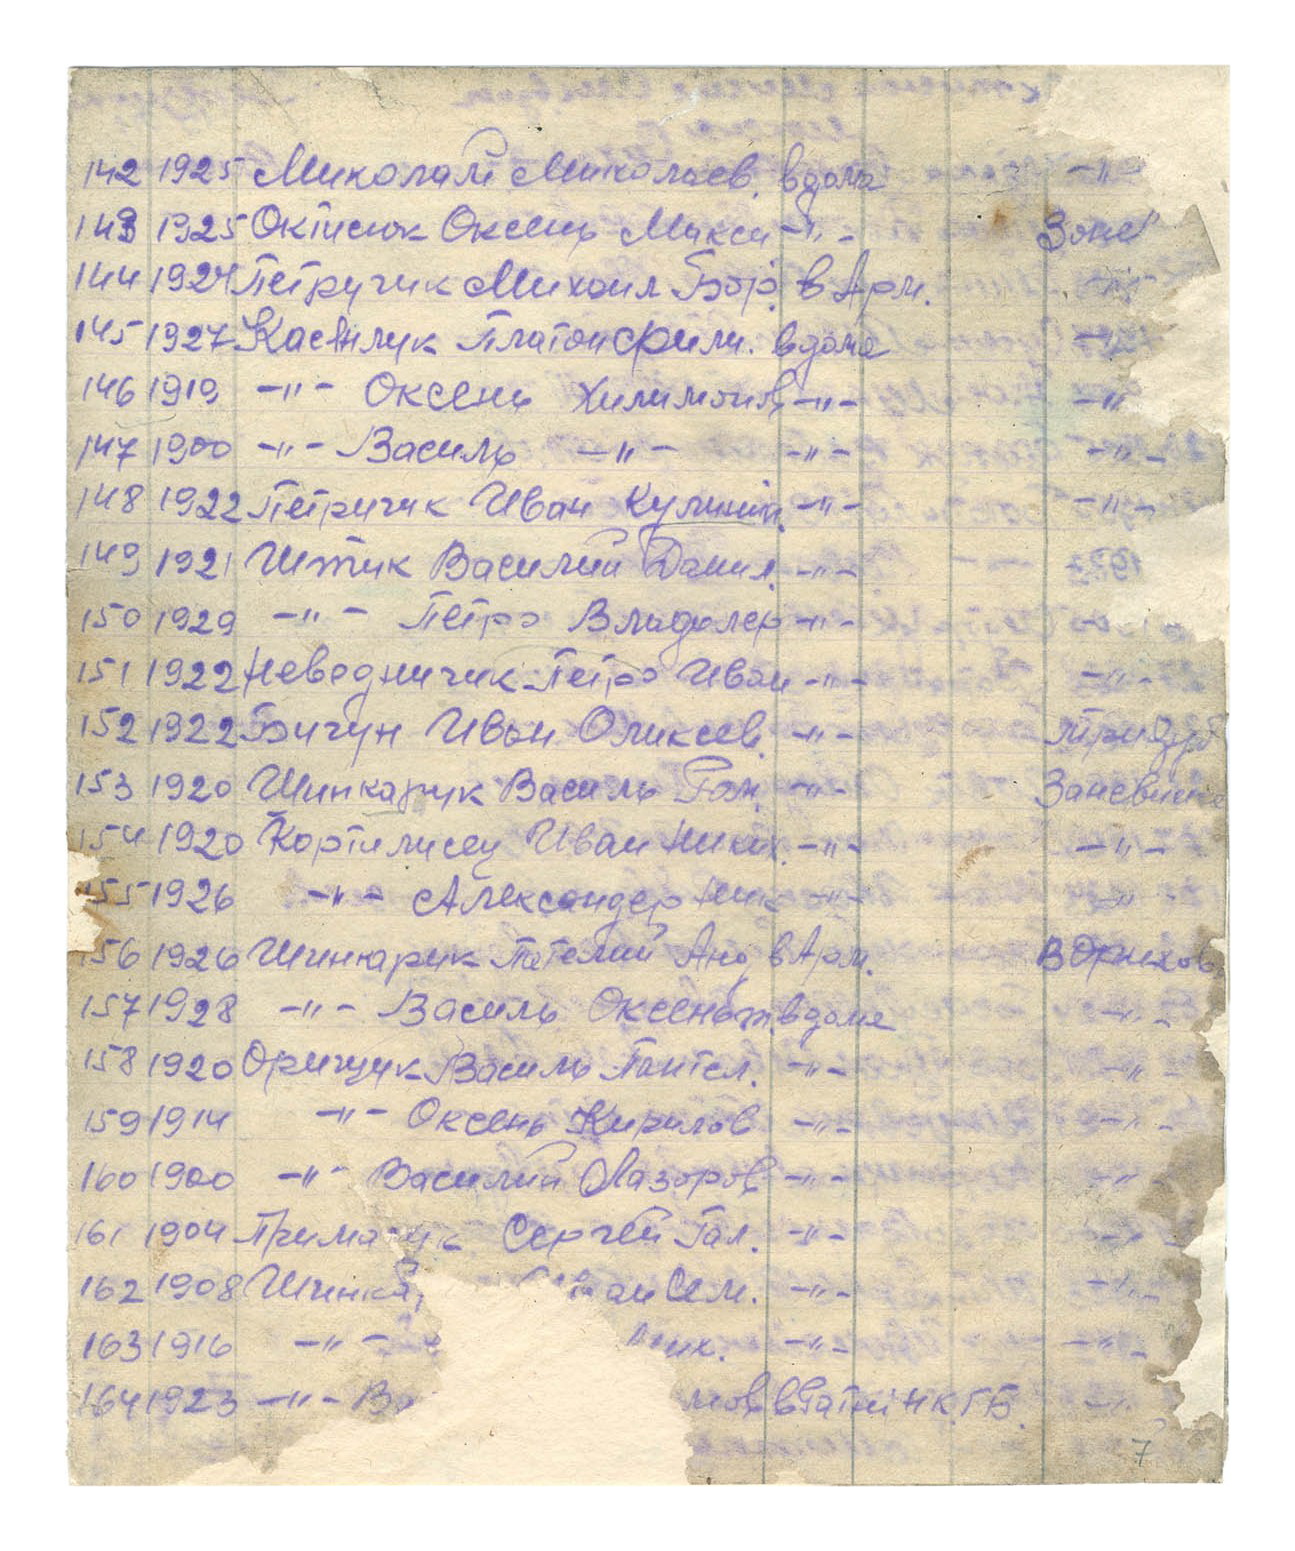 142 1925 Миколай Миколаєв. вдома -"-
143 1925 Октисюк Оксень Макси -"-
144 1927 Петручик Михаил Бор. в Арм. -"-
145 1927 Касянчук Платон Фили. вдома -"-
146 1919 -"- Оксень Хилимонов -"- -"-
147 1900 -"- Василь -"- -"- -"-
148 1922 Петричик Иван -"- -"-
149 1921 Штик Василий Данил. -"-
150 1929 -"- Петро -"- -"-
151 1922 Неводничик Петро Иван -"- -"-
152 1922 Бичун Иван Оликсев. -"-
153 1920 Шинкарук Василь Ром. -"-
154 1920 Кортилисец Иван Никих. -"- -"-
155 1926 -"- Александер Ник -"- -"-
156 1926 Шинкарук Анд. в Арм.
157 1928 -"- Василь вдома -"-
158 1920 Орищук Василь Пантел. -"- -"-
159 1914 -"- Оксень Кирилов -"- -"-
160 1900 -"- Василий Лазоров -"- -"-
161 1904 Сергей Гал. -"- -"-
162 1908 Сем. -"- -"-
163 1916 -"- -"- -"-
164 1923 -"- НКГБ. -"-
7